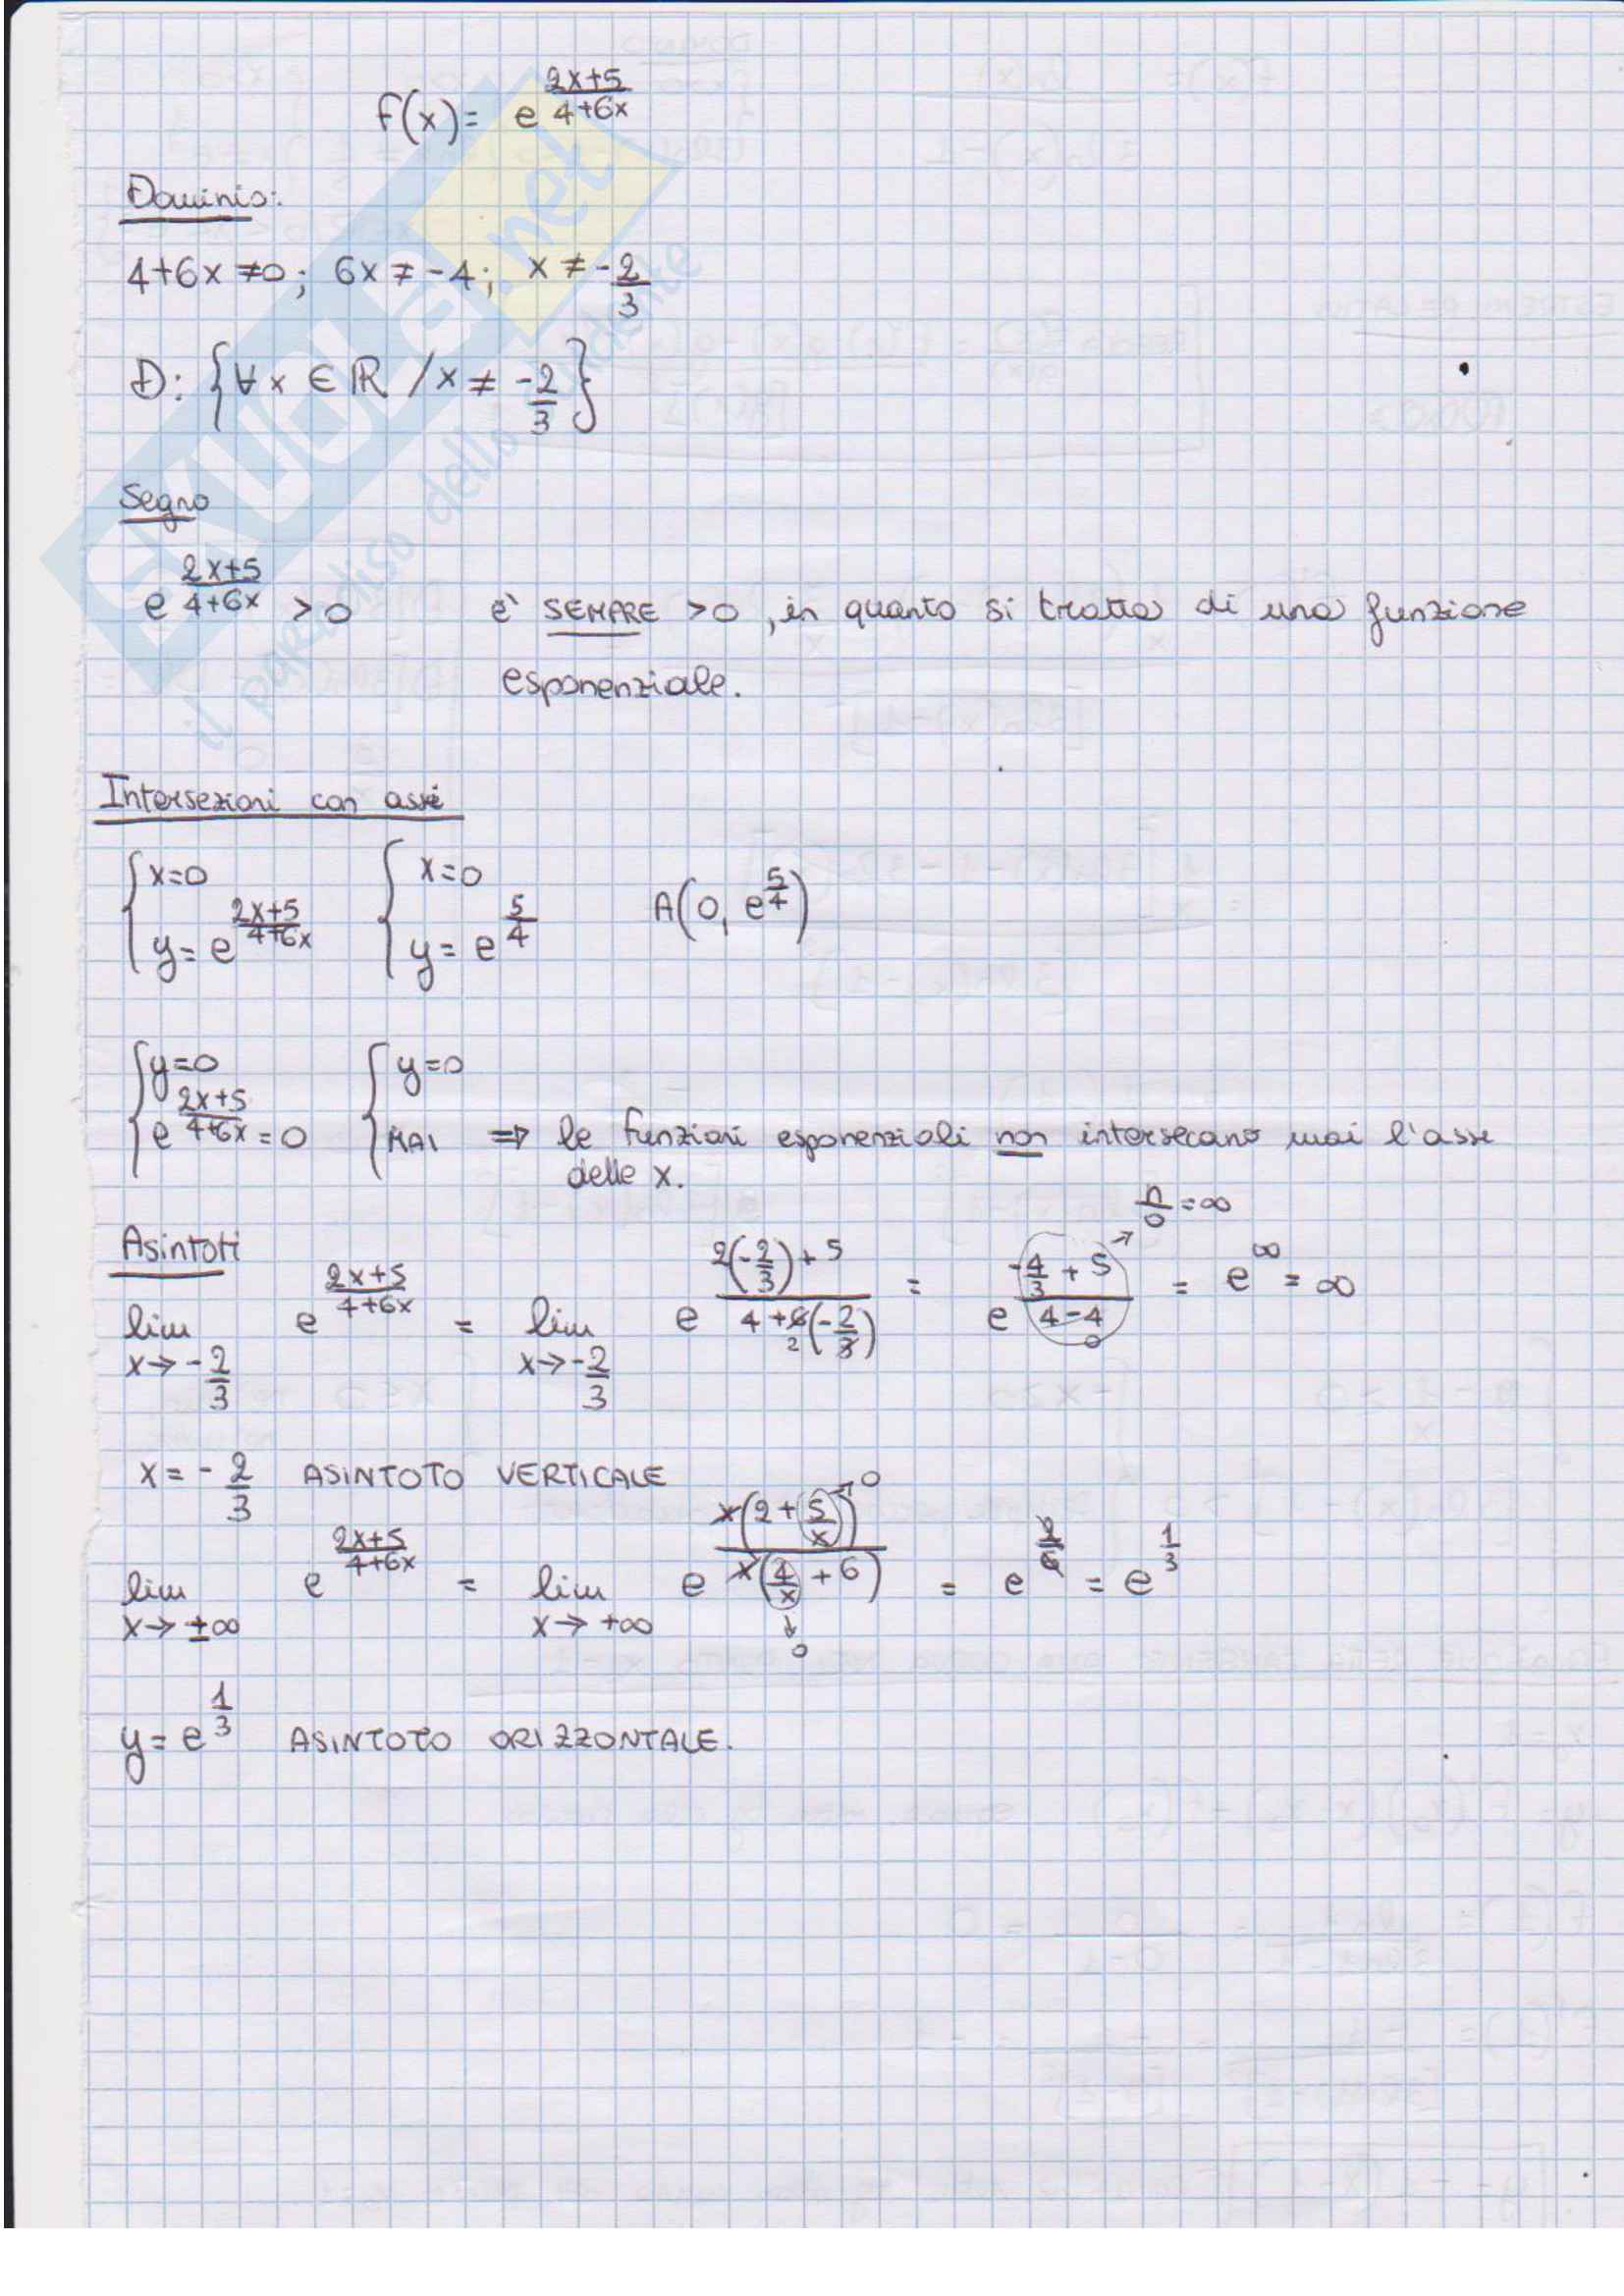 f(x)= e^((2x+5)/(4+6x))
Dominio:
4+6x ≠0; 6x ≠ -4; x ≠ -2/3
D: {∀ x ∈ ℝ / x ≠ -2/3}
Segno
e^((2x+5)/(4+6x)) > 0 è SEMPRE >0, in quanto si tratta di una funzione
esponenziale.
Intersezioni con assi
{x=0 {x=0
{y= e^((2x+5)/(4+6x)) {y= e^(5/4) A(0, e^(5/4))
{y=0 {y=0
{e^((2x+5)/(4+6x)) = 0 {MAI ⇒ le funzioni esponenziali non intersecano mai l'asse
delle x.
n/0 = ∞
Asintoti
lim x→-2/3 e^((2x+5)/(4+6x)) = lim x→-2/3 e^((2(-2/3)+5)/(4+6(-2/3))) = e^((-4/3+5)/(4-4)) = e^∞ = ∞
2 0
x = -2/3 ASINTOTO VERTICALE
lim x→±∞ e^((2x+5)/(4+6x)) = lim x→+∞ e^(x(2+5/x)/x(4/x+6)) = e^(2/6) = e^(1/3)
→0
↓ 0
y= e^(1/3) ASINTOTO ORIZZONTALE.
SKUOLA.net
il paradiso dello studente